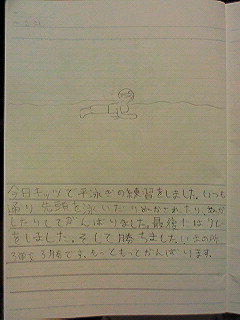 今日キッツで平泳ぎの練習をしました。いつも
通り先頭を泳いだりぬかされたり、ぬか
したりしてがんばりました。最後にはリレー
をしました。そして勝ちました。いまの所
3月です。もっともっとがんばります。